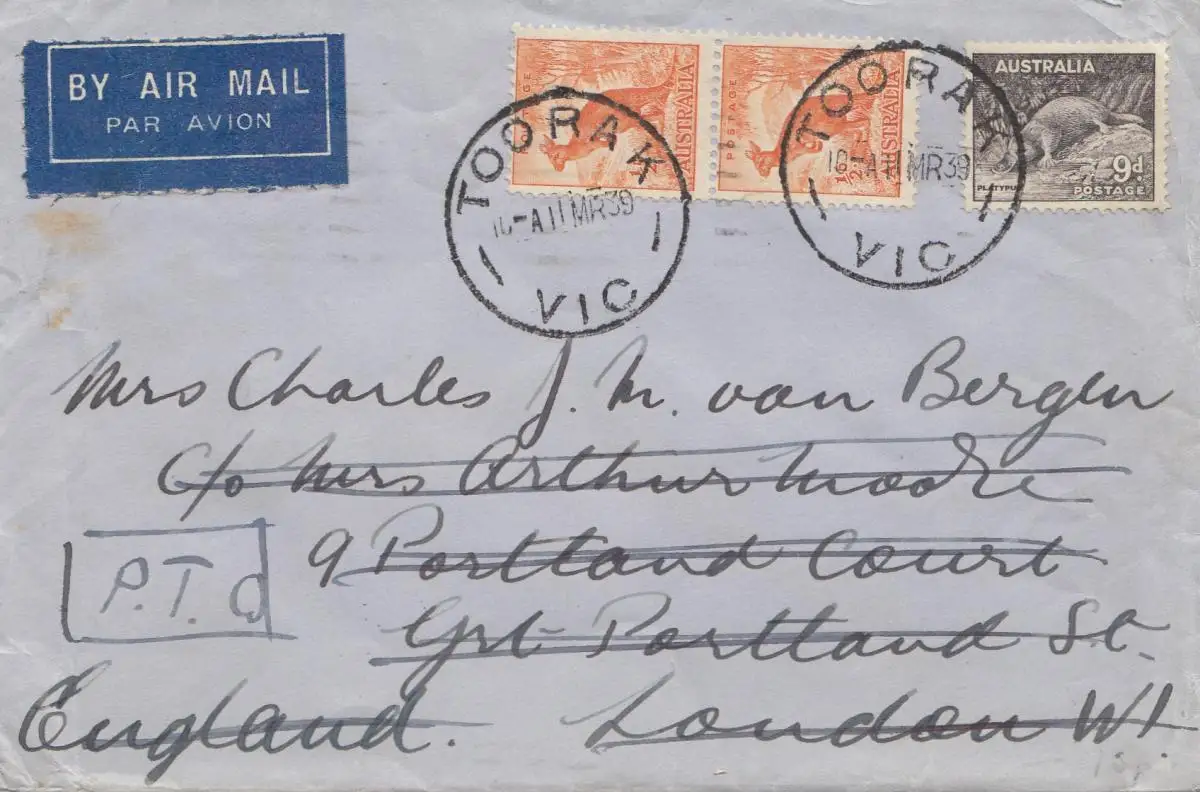 BY AIR MAIL
PAR AVION
POSTAGE AUSTRALIA
POSTAGE AUSTRALIA
AUSTRALIA
PLATYPUS
9d
POSTAGE
TOORAK
10-A 11 MR 39
VIC
TOORAK
10-A 11 MR 39
VIC
Mrs Charles J. M. van Bergen
c/o Mrs Arthur Moore
9 Portland Court
Grt Portland St.
England. London W1
P.T.O